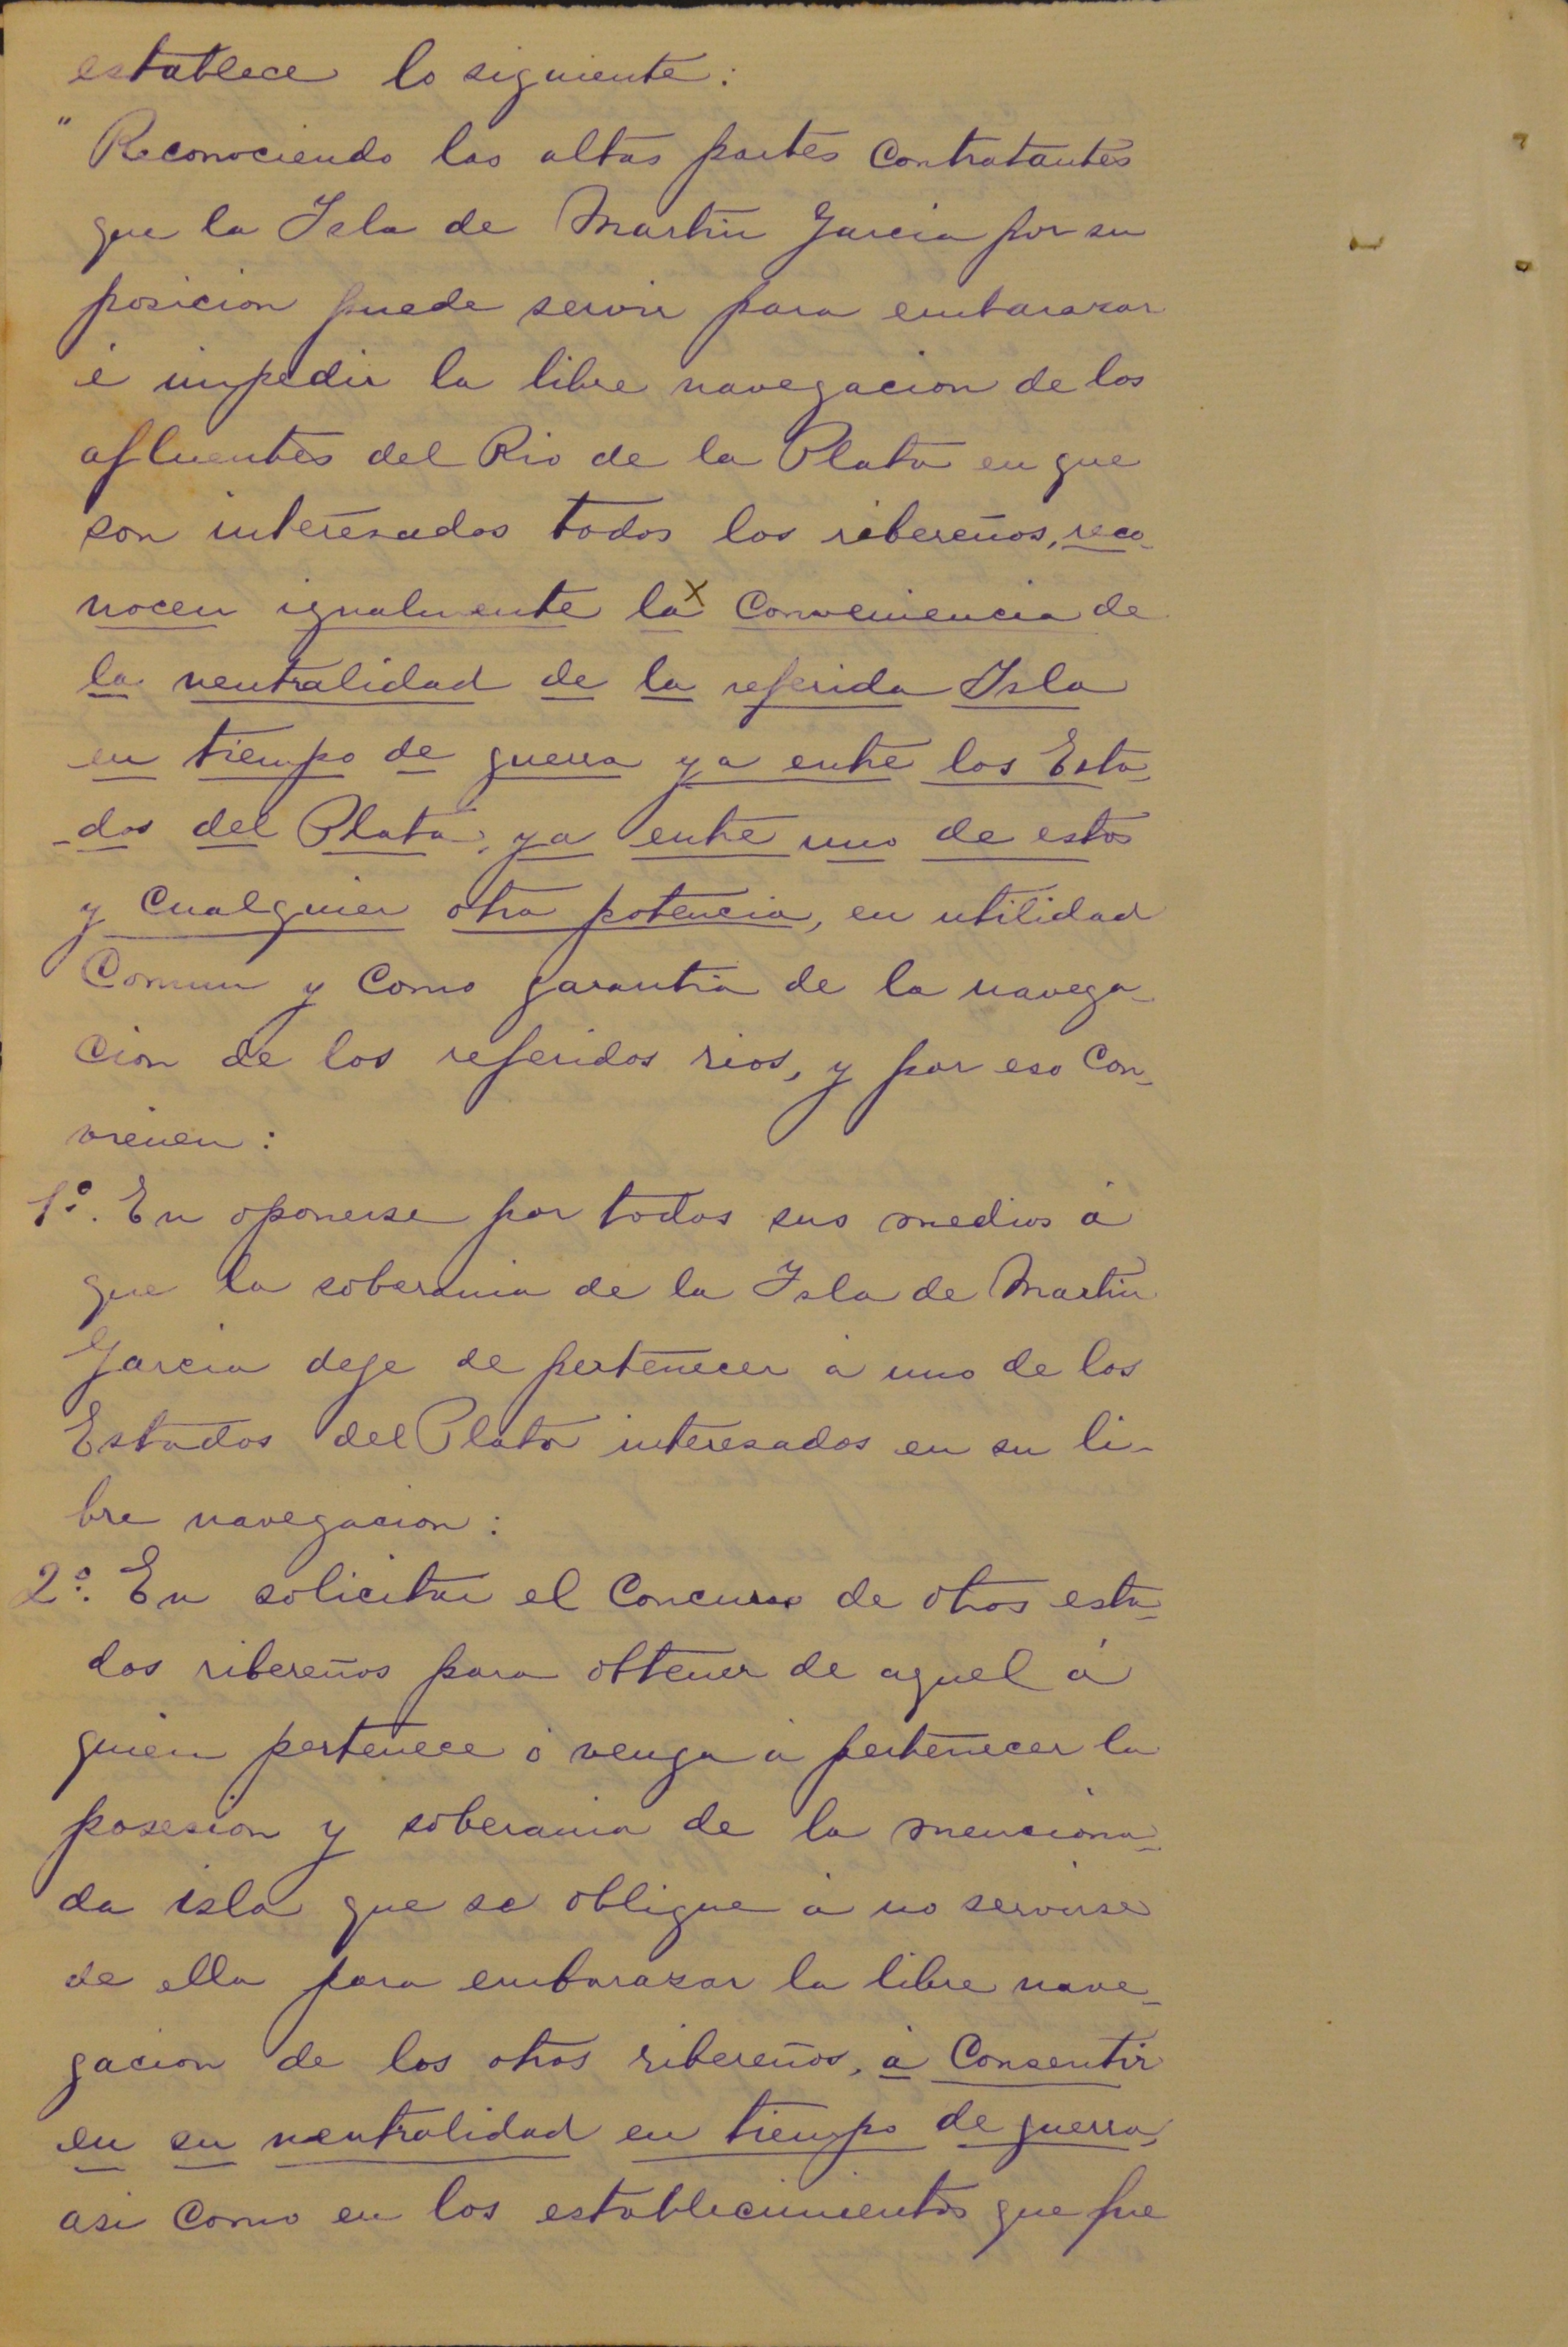 establece lo siguiente:
" Reconociendo las altas partes Contratantes
que la Isla de Martin Garcia por su
posicion puede servir para embarazar
é impedir la libre navegacion de los
afluentes del Rio de la Plata en que
son interesados todos los ribereños, reco-
nocen igualmente la x Conveniencia de
la neutralidad de la referida Isla
en tiempo de guerra ya entre los Esta-
-dos del Plata; ya entre uno de estos
y Cualquier otra potencia, en utilidad
Comun y Como garantia de la navega-
cion de los referidos rios, y por eso Con-
vienen:
1º. En oponerse por todos sus medios á
que la soberania de la Isla de Martin
Garcia deje de pertenecer á uno de los
Estados del Plata interesados en su li-
bre navegacion:
2º. En solicitar el Concurso de otros esta-
dos ribereños para obtener de aquel á
quien pertenece ó venga á pertenecer la
posesion y soberania de la menciona-
da isla que se obligue á no servirse
de ella para embarazar la libre nave-
gacion de los otros ribereños, á Consentir
en su neutralidad en tiempo de guerra,
asi Como en los establecimientos que fue